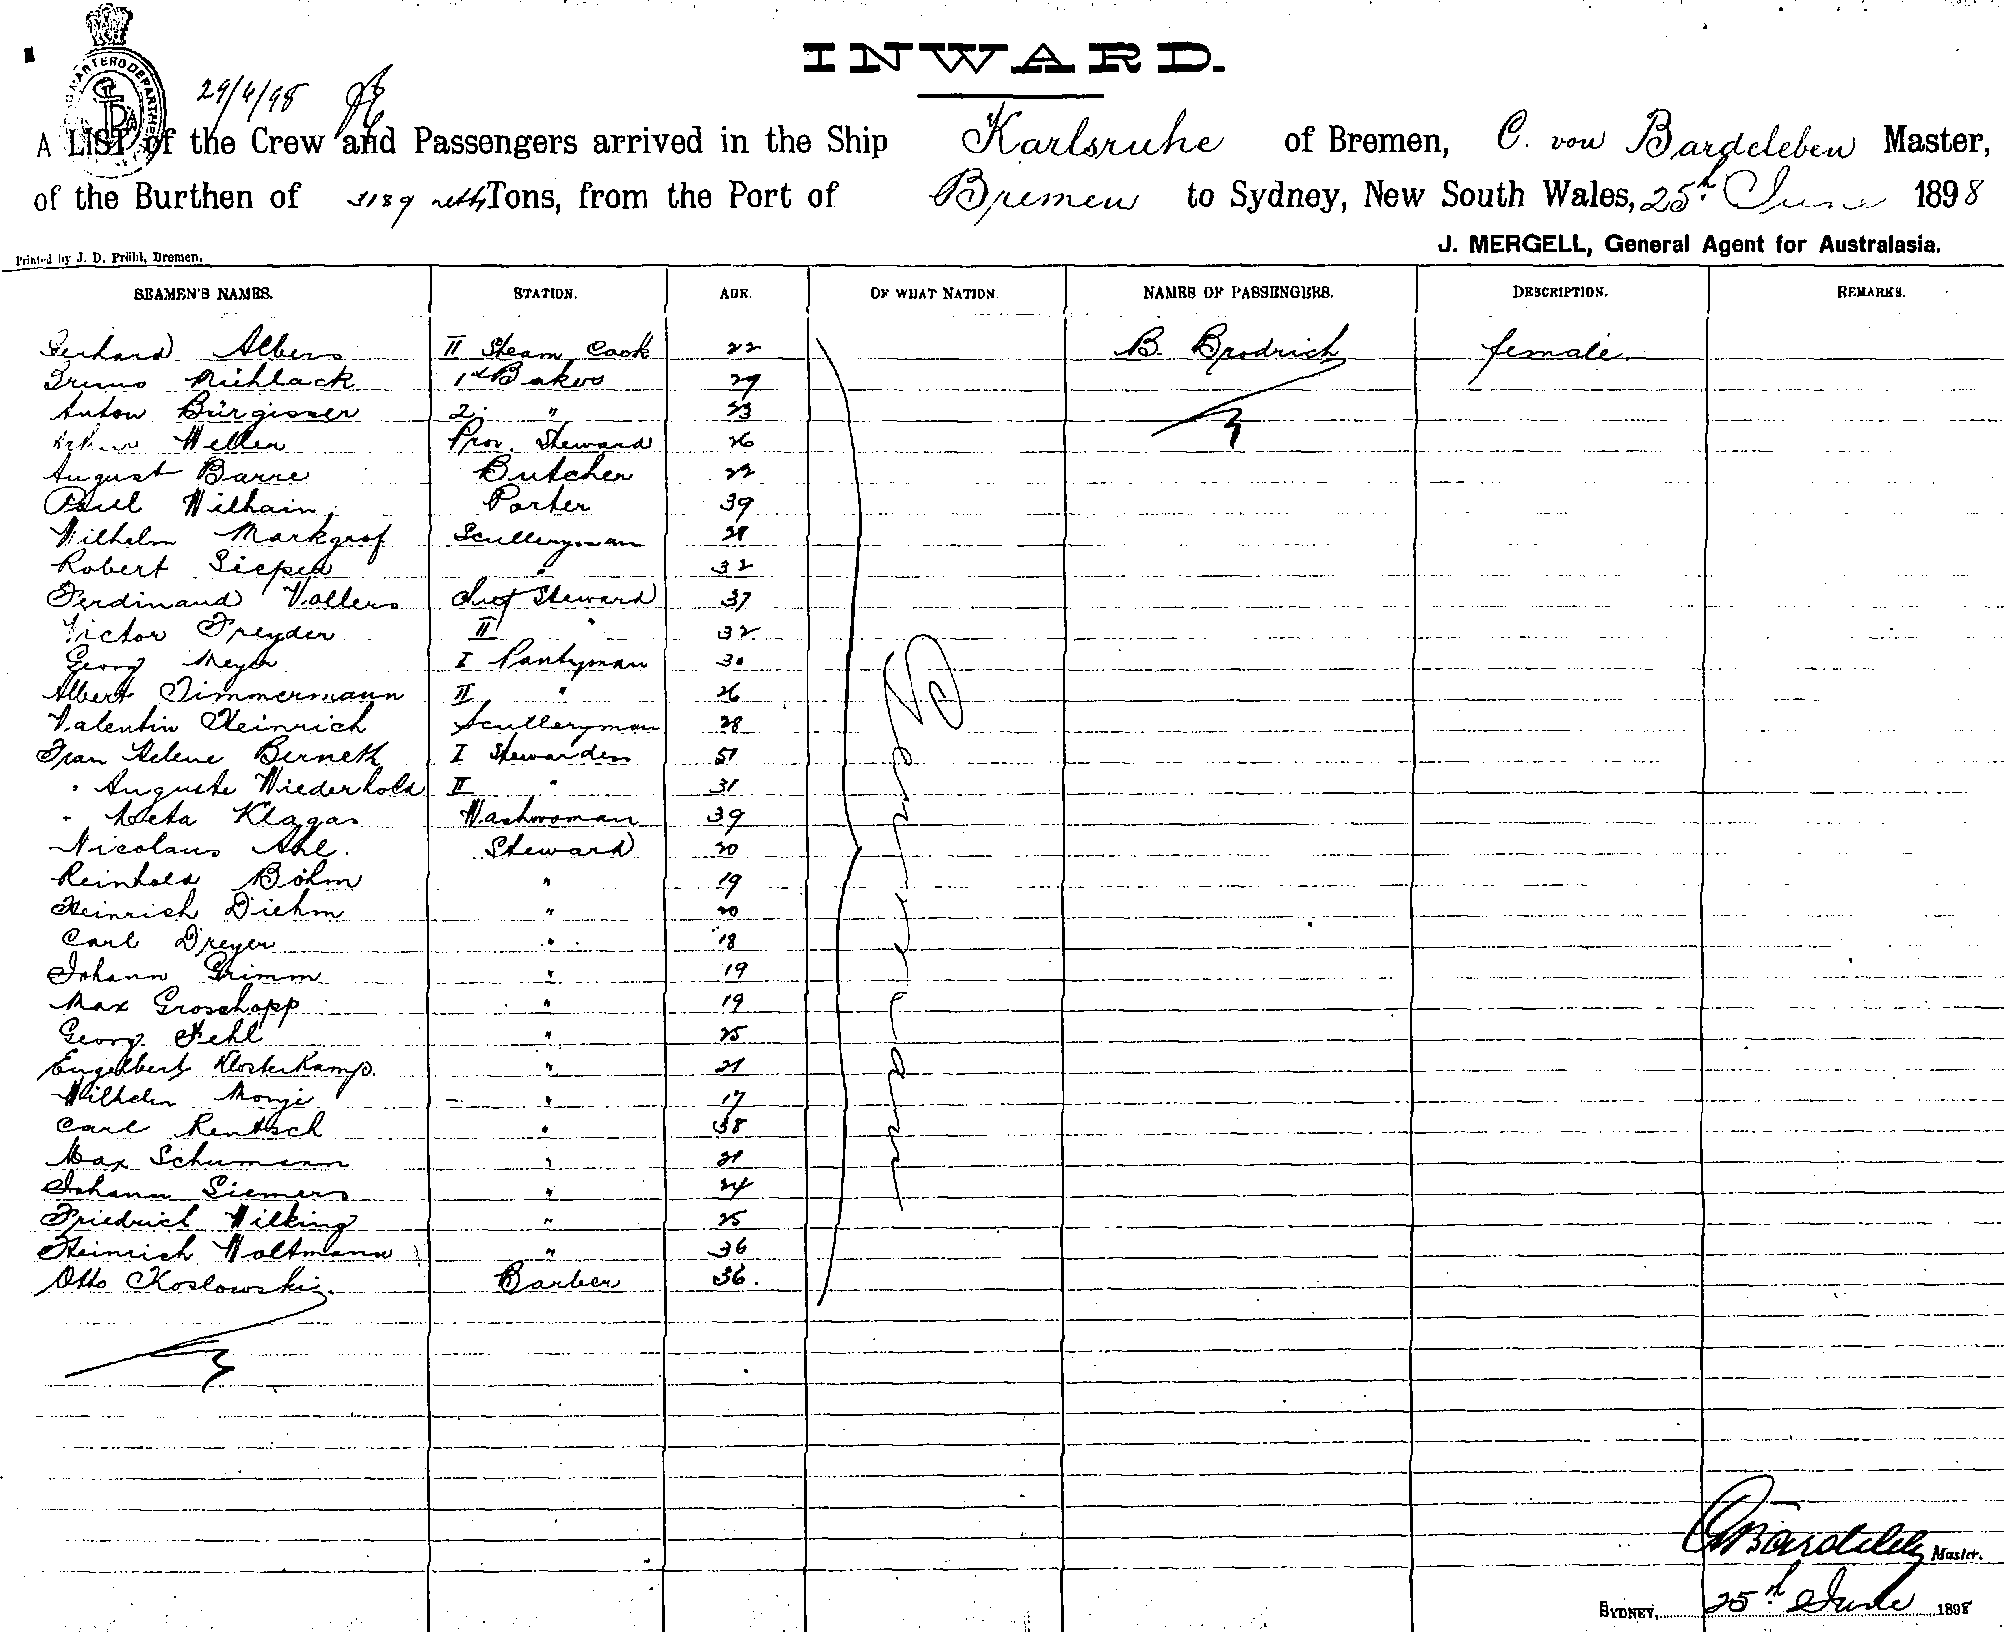 INWARD.
29/6/98
A LIST of the Crew and Passengers arrived in the Ship Karlsruhe of Bremen, C. von Bardeleben Master,
of the Burthen of 3189 Tons, from the Port of Bremen to Sydney, New South Wales, 25th June 1898
J. MERGELL, General Agent for Australasia.
Printed by J. D. Prühl, Bremen.
SEAMEN'S NAMES. STATION. AGE. OF WHAT NATION. NAMES OF PASSENGERS. DESCRIPTION. REMARKS.
Gerhard Albers II Steam Cook 22 B. Brodrich female
Bruno Mühlack 1st Baker 29
Anton Bürgisser 2. " 23
Weller Prov. Steward 26
August Barre Butcher 22
Paul Wilhain Porter 39
Wilhelm Markgraf Sculleryman 28
Robert Sieper " 32
Ferdinand Vollers Chief Steward 37
Victor Freyder II " 32
Georg Meyer I Pantryman 30
Albert Timmermann II " 26
Valentin Heinrich Sculleryman 28
Frau Helene Berneth I Stewardess 51
" Auguste Wiederhold II " 31
" Meta Klages Washwoman 39
Nicolaus Ahl. Steward 20
Reinhold Böhm " 19
Heinrich Diehm " 20
Carl Dreyer " 18
Johann Grimm " 19
Max Groschopp " 19
Georg Hehl " 25
Engelbert Klosterkamp. " 21
Wilhelm Monje " 17
Carl Rentsch " 38
Max Schumann " 21
Johann Siemers " 24
Friedrich Wilking " 25
Heinrich Woltmann " 36
Otto Koslowski. Barber 36.
Germany
Bardeleben Master.
SYDNEY, 25th June 1898